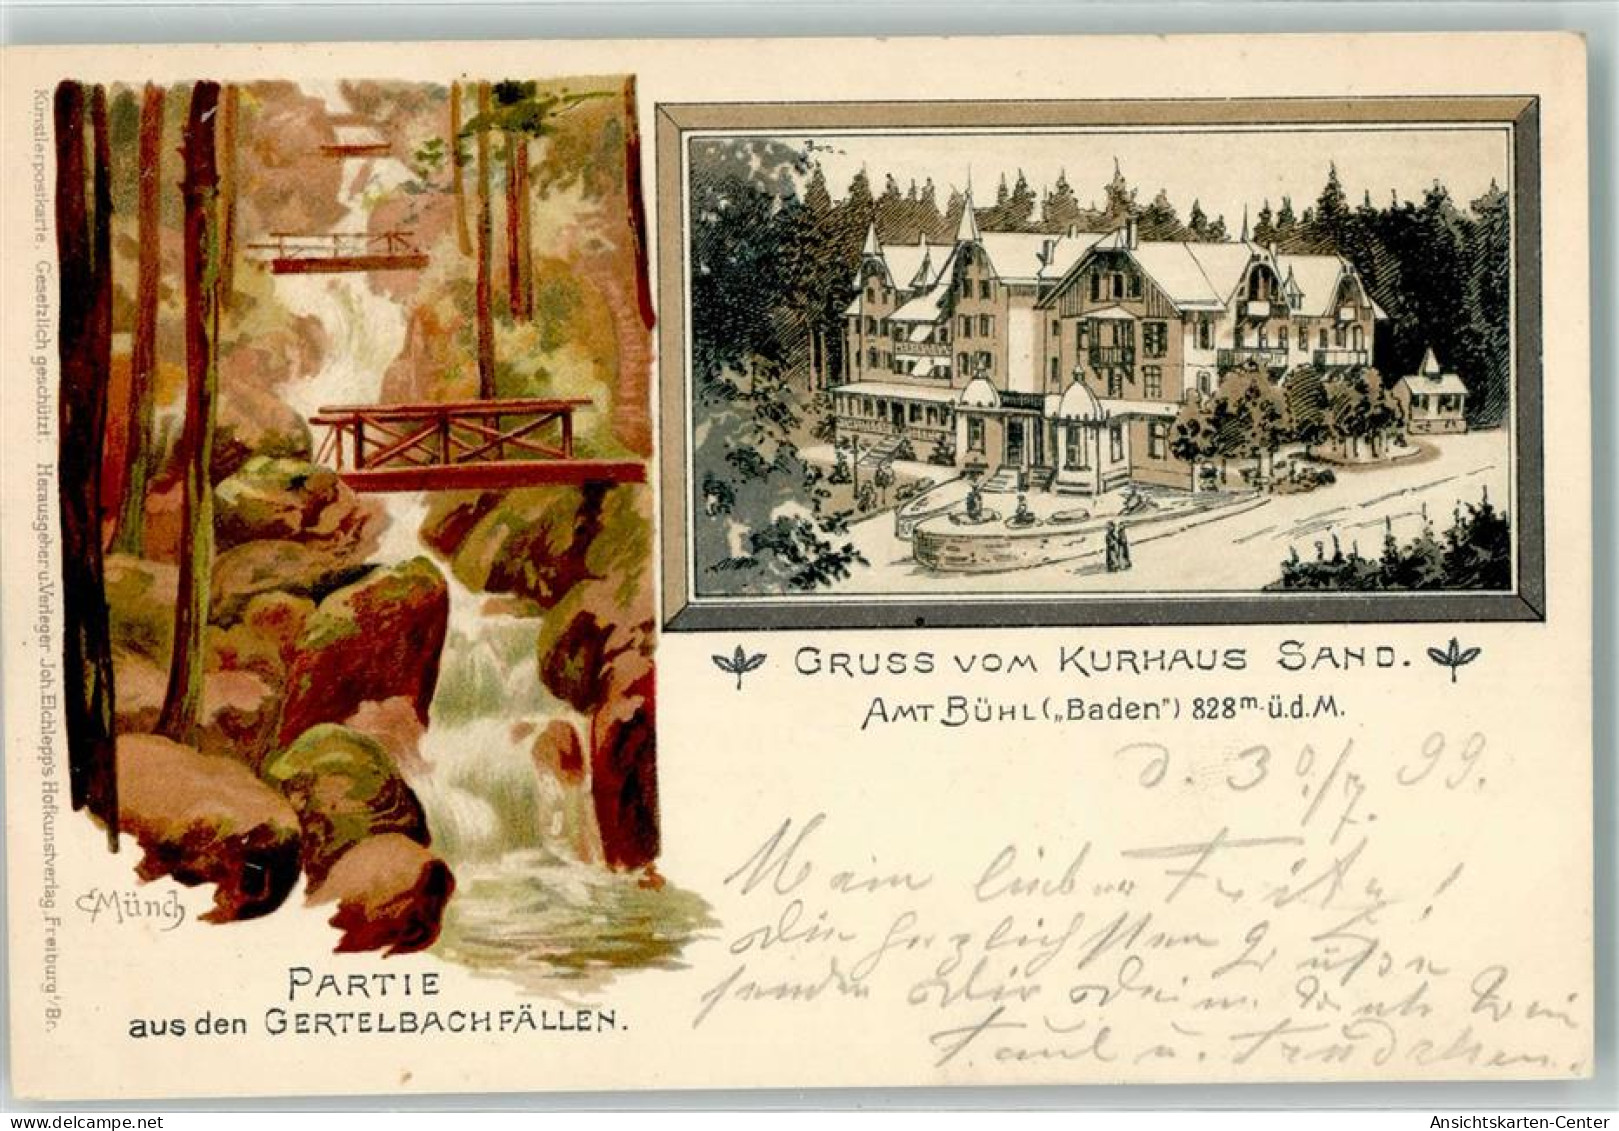 Künstlerpostkarte. Gesetzlich geschützt. Herausgeber u. Verleger Joh. Elchlepp's Hofkunstverlag, Freiburg i/Br.
CMünch
PARTIE
aus den GERTELBACHFÄLLEN.
GRUSS VOM KURHAUS SAND.
AMT BÜHL („Baden") 828 m. ü. d. M.
d. 30/7. 99.
Mein lieber Fritz!
Die herzlichsten Grüße
senden Dir Dein
Paul u. Trudchen.
Ansichtskarten-Center